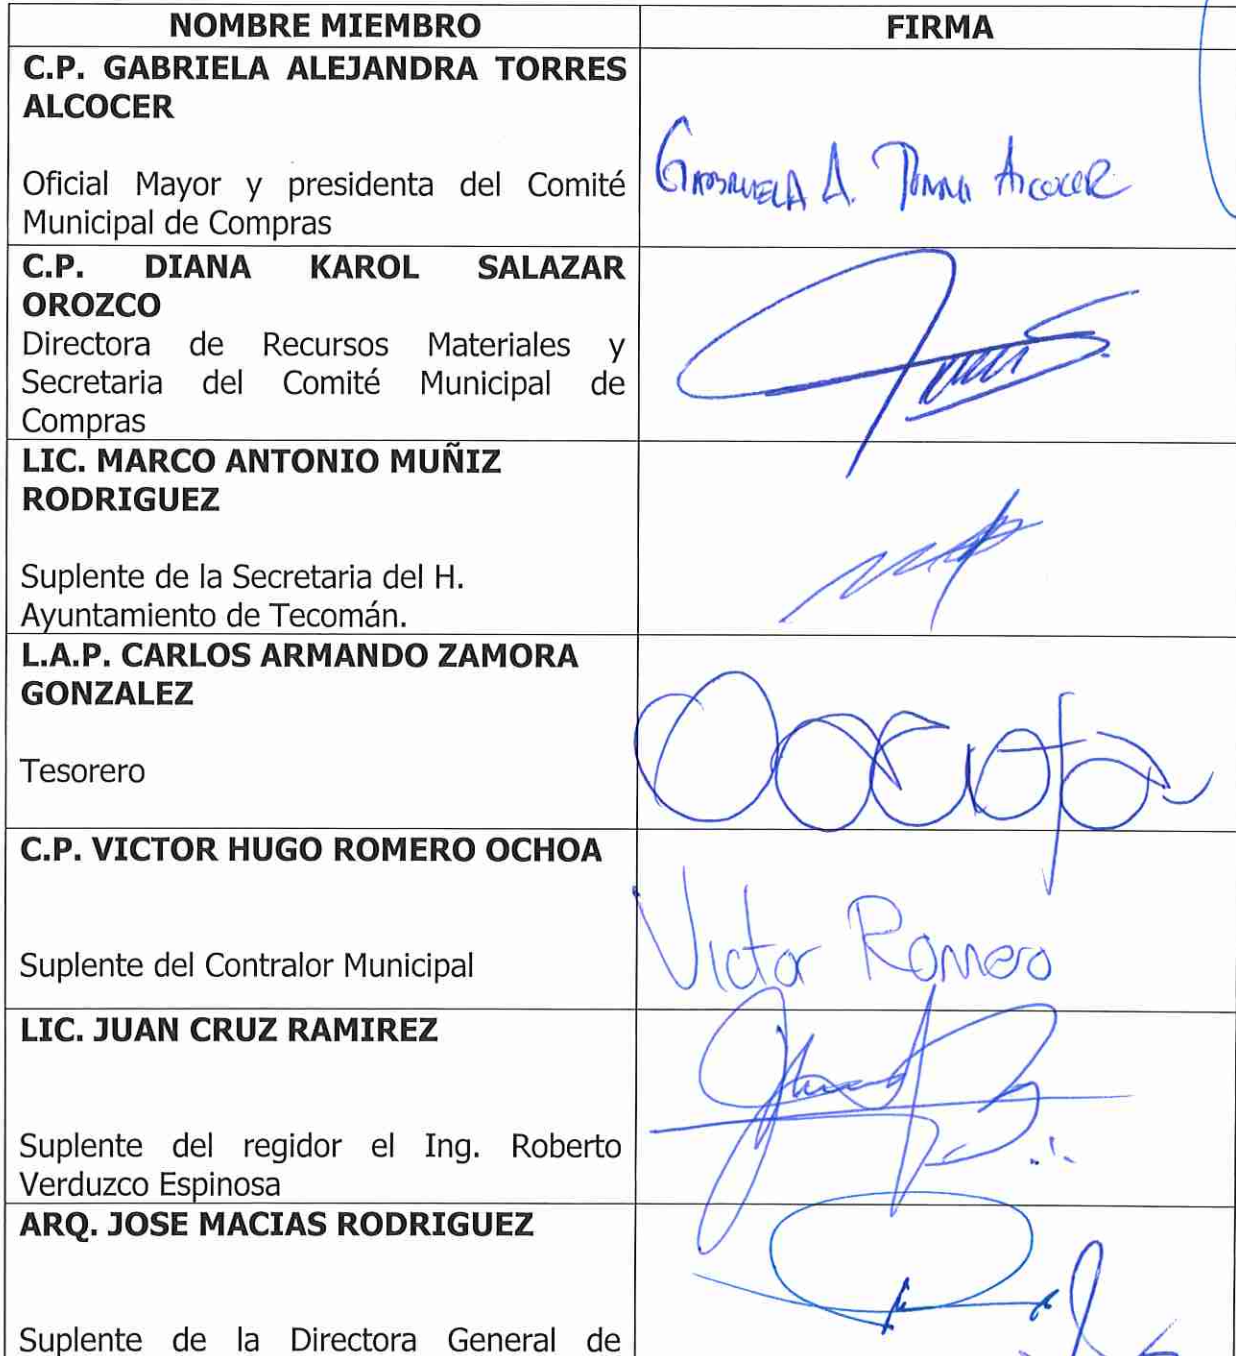 NOMBRE MIEMBRO FIRMA
C.P. GABRIELA ALEJANDRA TORRES
ALCOCER
Oficial Mayor y presidenta del Comité
Municipal de Compras
GABRIELA A. Torres Alcocer
C.P. DIANA KAROL SALAZAR
OROZCO
Directora de Recursos Materiales y
Secretaria del Comité Municipal de
Compras
LIC. MARCO ANTONIO MUÑIZ
RODRIGUEZ
Suplente de la Secretaria del H.
Ayuntamiento de Tecomán.
L.A.P. CARLOS ARMANDO ZAMORA
GONZALEZ
Tesorero
C.P. VICTOR HUGO ROMERO OCHOA
Suplente del Contralor Municipal
Victor Romero
LIC. JUAN CRUZ RAMIREZ
Suplente del regidor el Ing. Roberto
Verduzco Espinosa
ARQ. JOSE MACIAS RODRIGUEZ
Suplente de la Directora General de